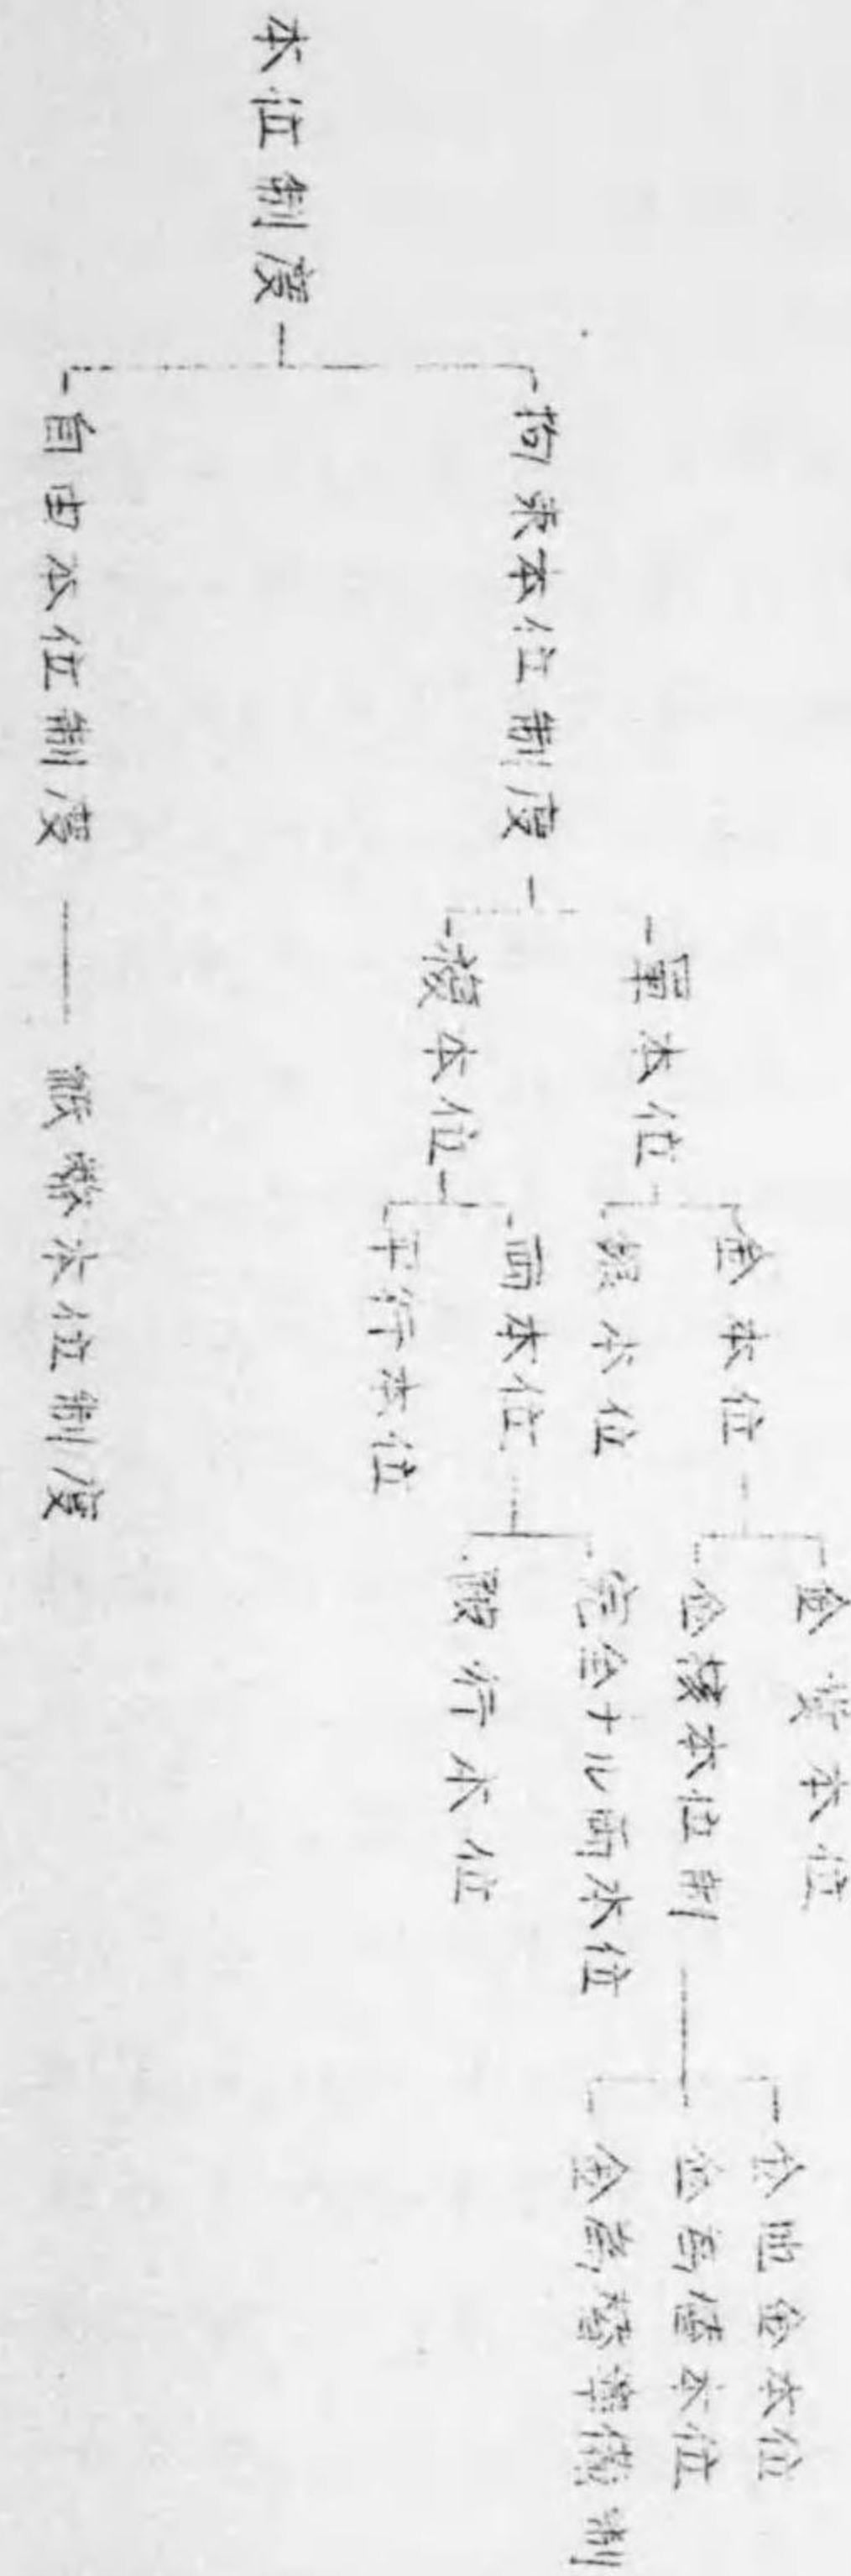 本位制度
拘束本位制度
單本位
金本位
金貨本位
金核本位制
金地金本位
金為替本位
金為替準備制
銀本位
複本位
両本位
完全ナル両本位
跛行本位
平行本位
自由本位制度
紙幣本位制度